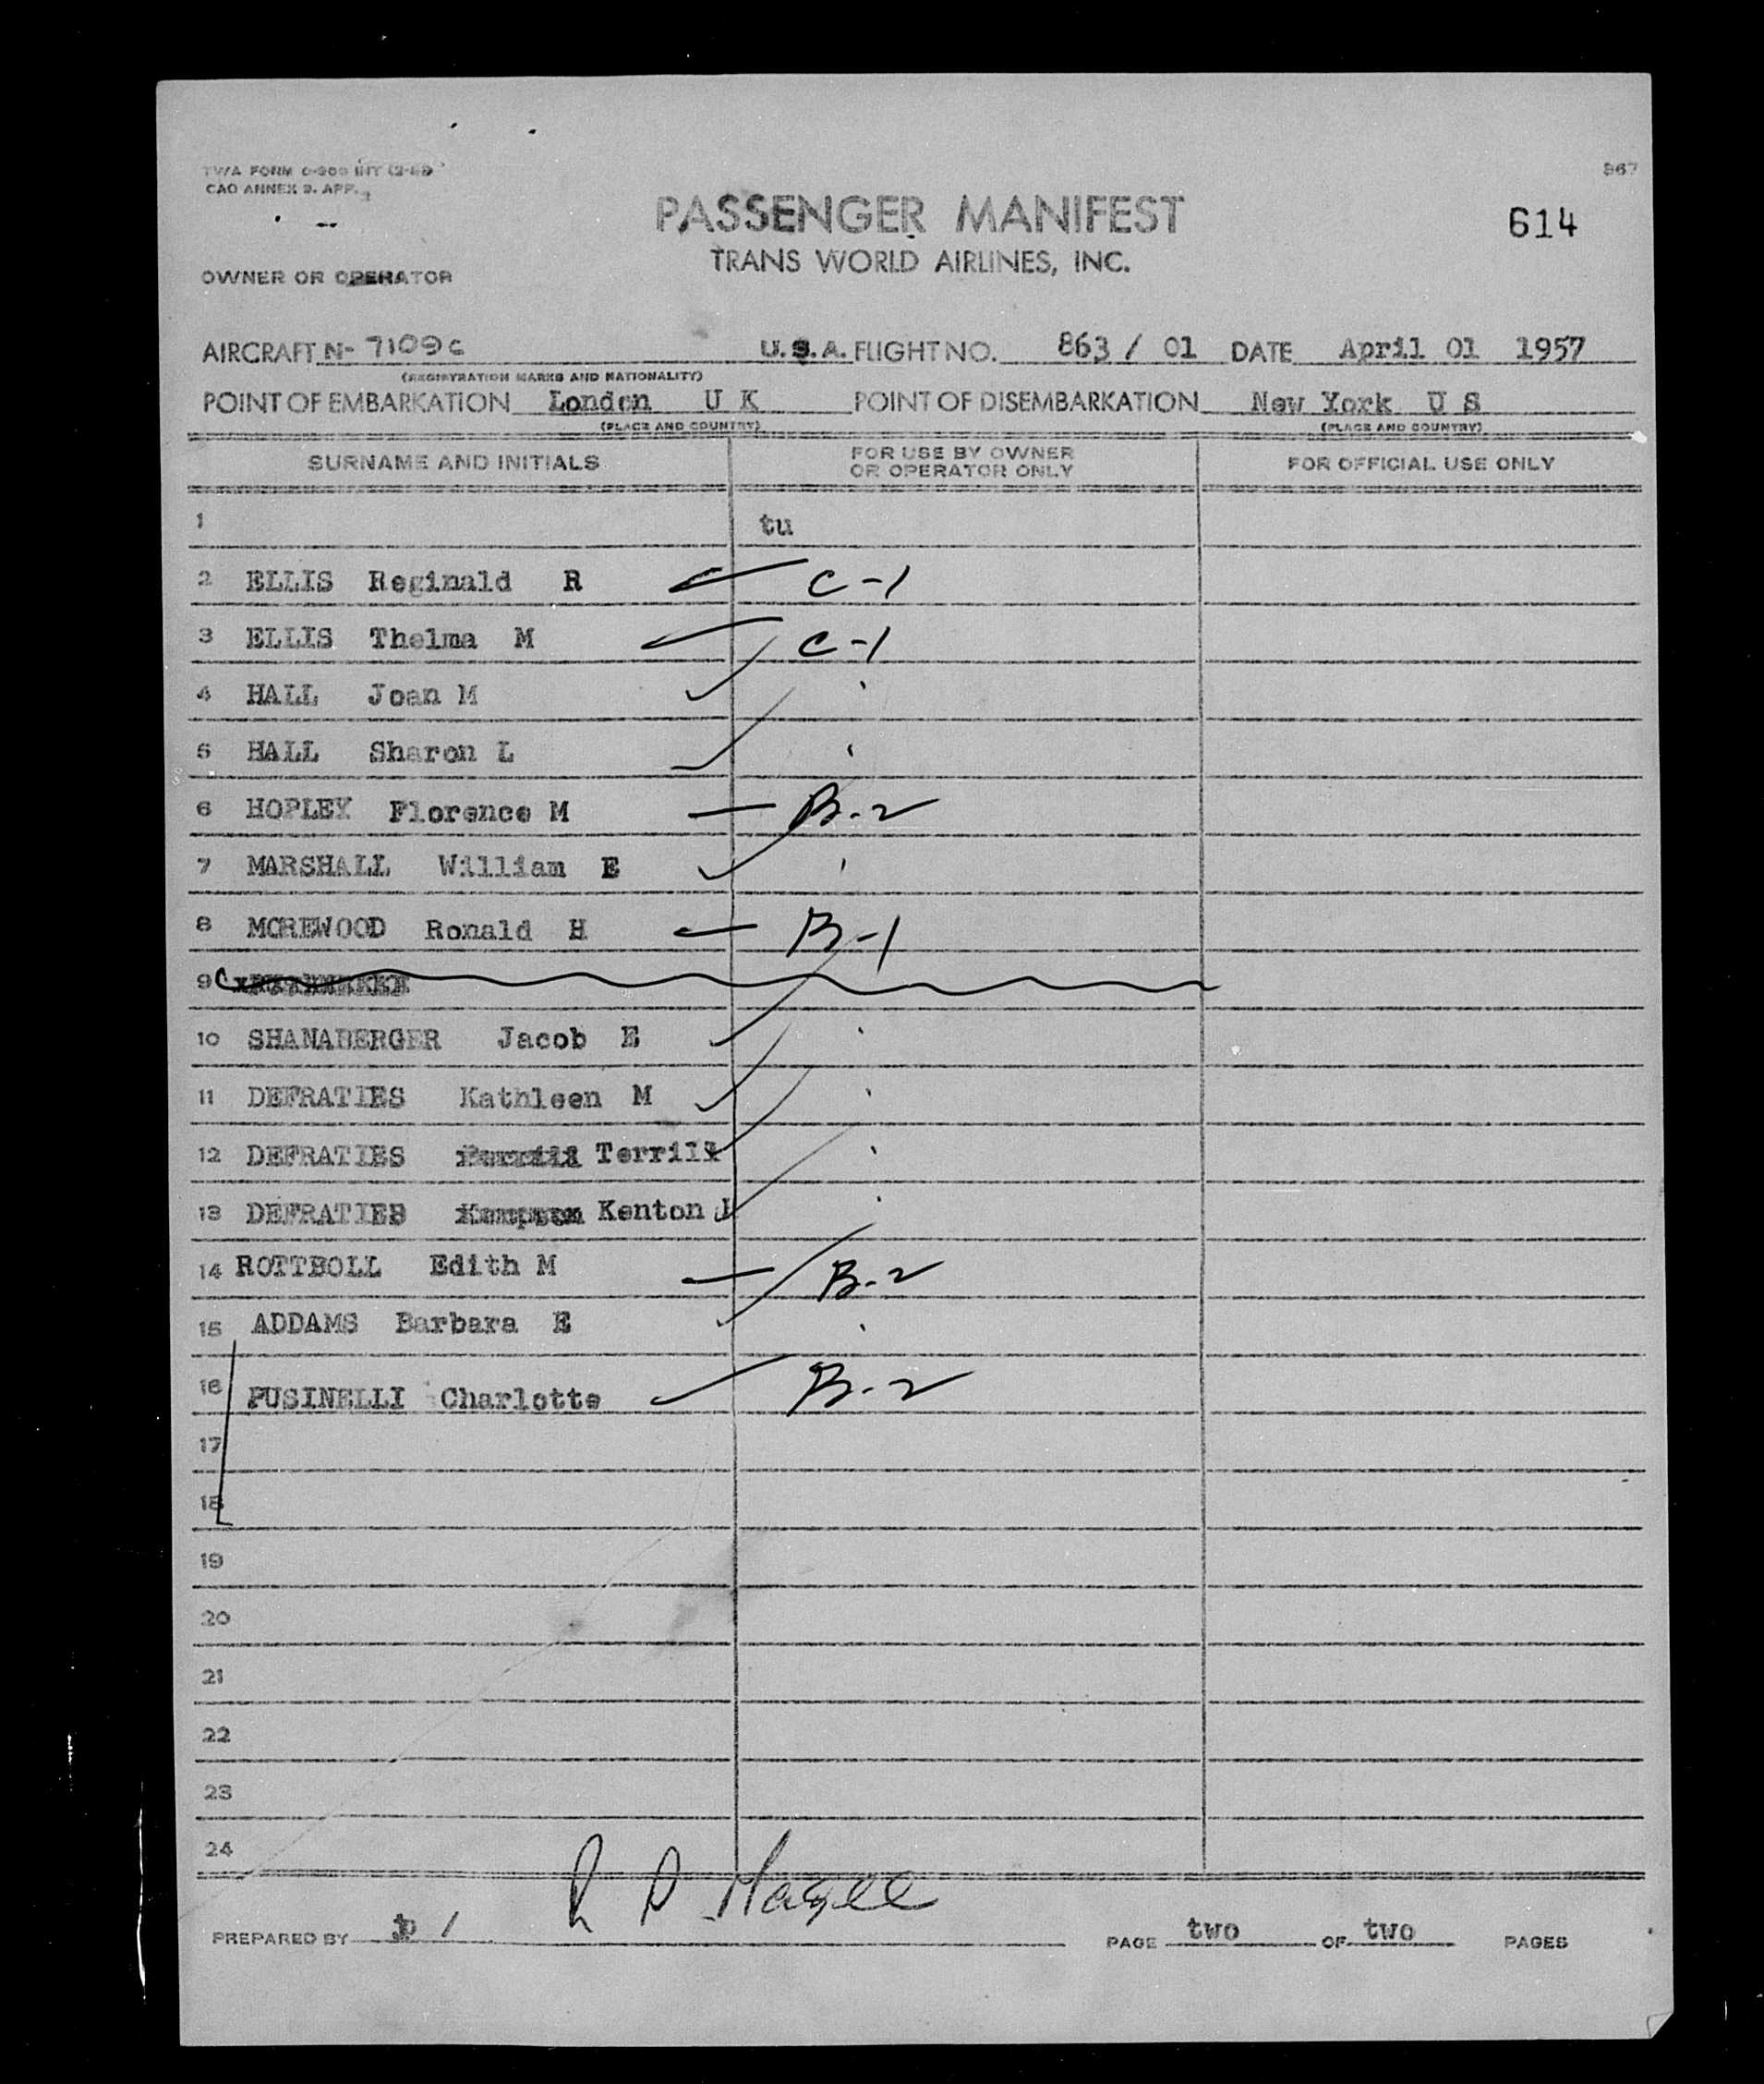 CAO ANNEX 9. APP.
PASSENGER MANIFEST
614
TRANS WORLD AIRLINES, INC.
OWNER OR OPERATOR
AIRCRAFT N- 7109C U.S.A. FLIGHT NO. 863 / 01 DATE April 01 1957
(REGISTRATION MARKS AND NATIONALITY)
POINT OF EMBARKATION London U K POINT OF DISEMBARKATION New York U S
(PLACE AND COUNTRY) (PLACE AND COUNTRY)
SURNAME AND INITIALS FOR USE BY OWNER OR OPERATOR ONLY FOR OFFICIAL USE ONLY
1 tu
2 ELLIS Reginald R C-1
3 ELLIS Thelma M C-1
4 HALL Joan M
5 HALL Sharon L
6 HOPLEY Florence M B-2
7 MARSHALL William E
8 MOREWOOD Ronald H B-1
9
10 SHANABERGER Jacob E
11 DEFRATIES Kathleen M
12 DEFRATIES Terrill
13 DEFRATIES Kenton
14 ROTTBOLL Edith M B-2
15 ADDAMS Barbara E
16 PUSINELLI Charlotte B-2
17
18
19
20
21
22
23
24
R D Magee
PREPARED BY / PAGE two OF two PAGES